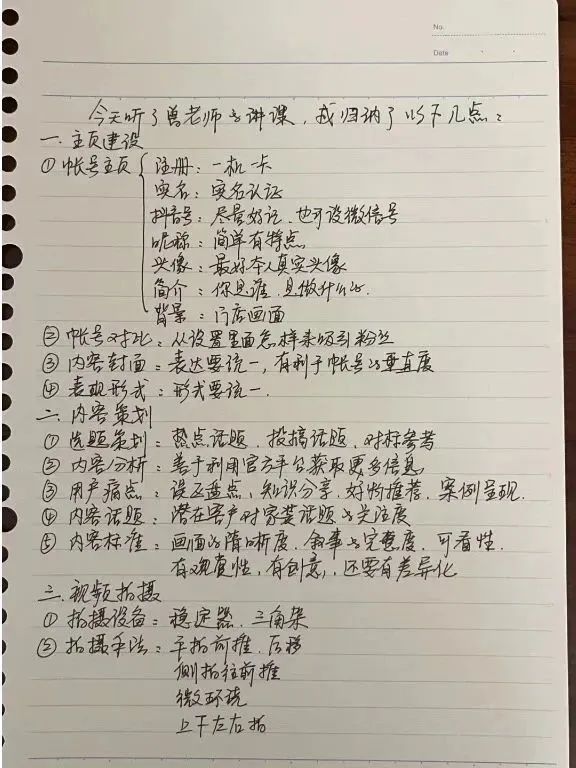 No.
Date
今天听了曾老师的讲课，我归纳了以下几点：
一、主页建设
① 帐号主页 { 注册：一机一卡
实名：实名认证
抖音号：尽量好记、也可设微信号
昵称：简单有特点
头像：最好本人真实头像
简介：你是谁，是做什么的.
背景：门店画面
② 帐号对比：从设置里面怎样来吸到粉丝
③ 内容封面：表达要统一，有利于帐号的垂直度
④ 表现形式：形式要统一.
二、内容策划
① 选题策划：热点话题、投搞话题、对标参考
② 内容分析：善于利用官方平台获取更多信息
③ 用户痛点：误区盘点，知识分享，好物推荐，案例呈现.
④ 内容话题：潜在客户对家装话题的关注度
⑤ 内容标准：画面的清晰度，叙事的完整度，可看性.
有观真性，有创意，还要有差异化
三、视频拍摄
① 拍摄设备：稳定器、三角架
② 拍摄手法：平拍前推、后移
侧拍往前推
微环绕
上下左右拍